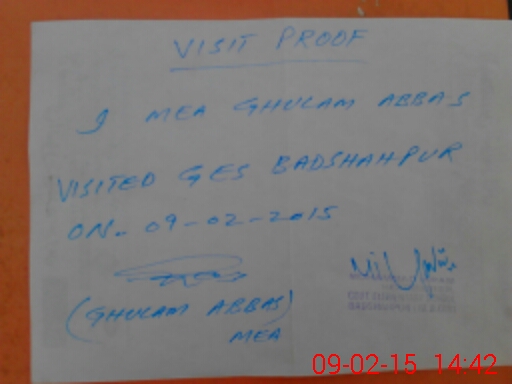 VISIT PROOF
I MEA GHULAM ABBAS
VISITED GES BADSHAHPUR
ON- 09-02-2015
(GHULAM ABBAS)
MEA
09-02-15 14:42